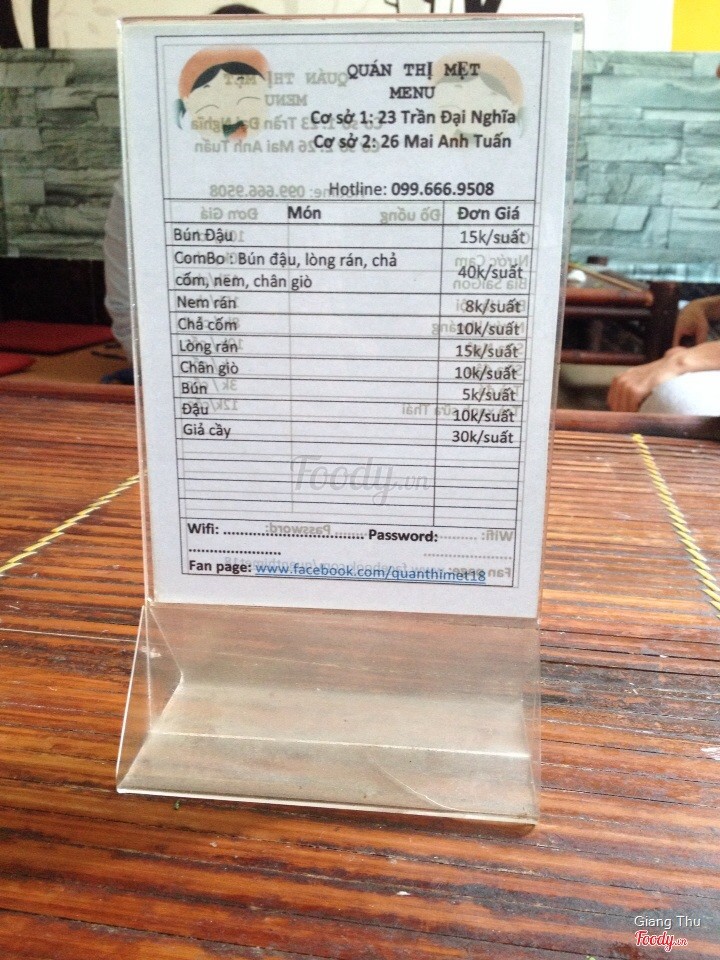 QUÁN THỊ MẸT
MENU
Cơ sở 1: 23 Trần Đại Nghĩa
Cơ sở 2: 26 Mai Anh Tuấn
Hotline: 099.666.9508
Món Đơn Giá
Bún Đậu 15k/suất
ComBo : Bún đậu, lòng rán, chả
cốm, nem, chân giò 40k/suất
Nem rán 8k/suất
Chả cốm 10k/suất
Lòng rán 15k/suất
Chân giò 10k/suất
Bún 5k/suất
Đậu 10k/suất
Giả cầy 30k/suất
Foody.vn
Wifi: .................................. Password:
......................
Fan page: www.facebook.com/quanthimet18
Giang Thu
Foody.vn